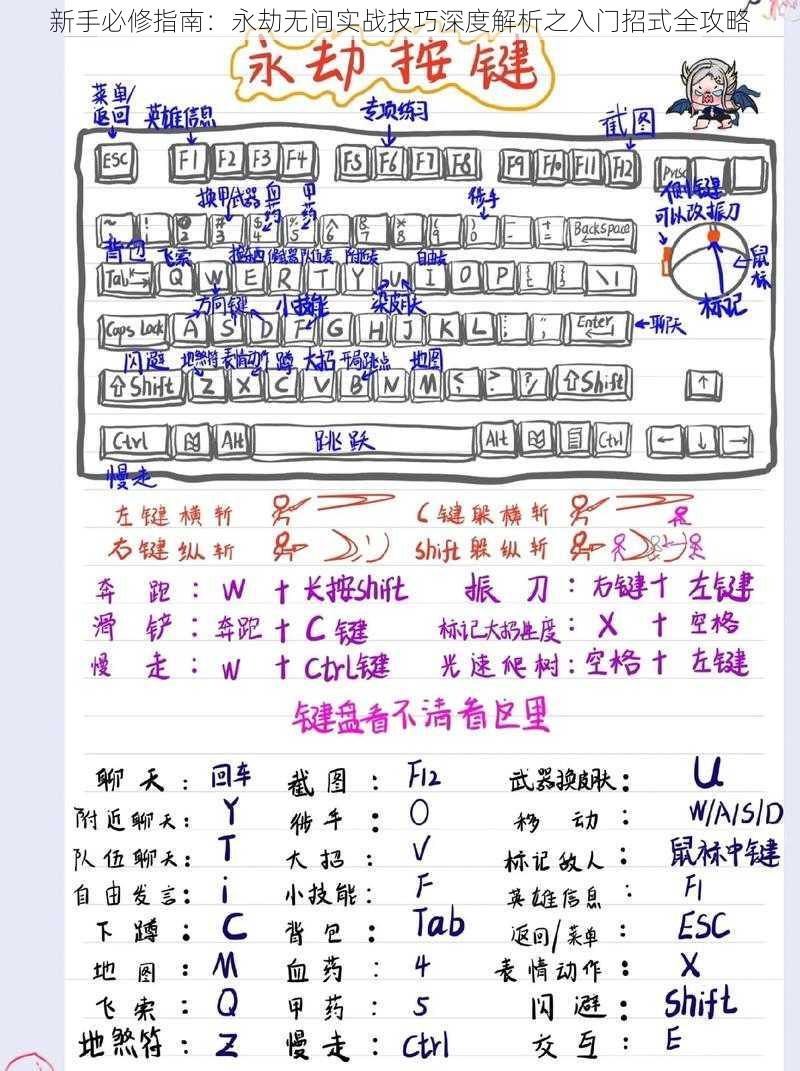 新手必修指南：永劫无间实战技巧深度解析之入门招式全攻略
永劫按键
菜单/返回
英雄信息
专项练习
截图
ESC F1 F2 F3 F4 F5 F6 F7 F8 F9 F10 F11 F12 Prtsc
换甲 武器 血药 甲药 徒手
侧键可以改振刀
~ ! 2 #3 $4 %5 ^6 &7 *8 (9 )0 - += Backspace
背包 飞索 队伍 附近 自由
鼠标
Tab Q W E R T Y U I O P { } \ |
方向键 小技能 换皮肤
标记
Caps Lock A S D F G H J K L ; " Enter
聊天
闪避 地煞符 表情动作 蹲 大招 开局跳点 地图
⇧Shift Z X C V B N M < ? ?/ ⇧Shift ↑
Ctrl Alt 跳跃 Alt Ctrl ← ↓ →
慢走
左键横斩 C键躲横斩
右键纵斩 Shift躲纵斩
奔跑：W＋长按shift 振刀：右键＋左键
滑铲：奔跑＋C键 标记大招进度：X＋空格
慢走：W＋Ctrl键 光速爬树：空格＋左键
键盘看不清看这里
聊天：回车 截图：F12 武器换皮肤：U
附近聊天：Y 徒手：O 移动：W/A/S/D
队伍聊天：T 大招：V 标记敌人：鼠标中键
自由发言：i 小技能：F 英雄信息：F1
下蹲：C 背包：Tab 返回/菜单：ESC
地图：M 血药：4 表情动作：X
飞索：Q 甲药：5 闪避：Shift
地煞符：Z 慢走：Ctrl 交互：E